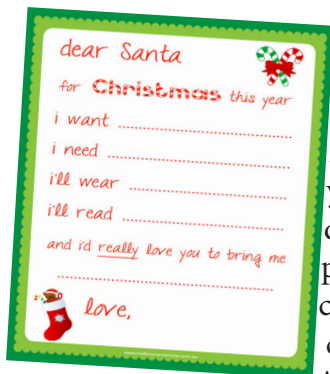 dear Santa
for Christmas this year
i want
i need
i'll wear
i'll read
and i'd really love you to bring me
love,